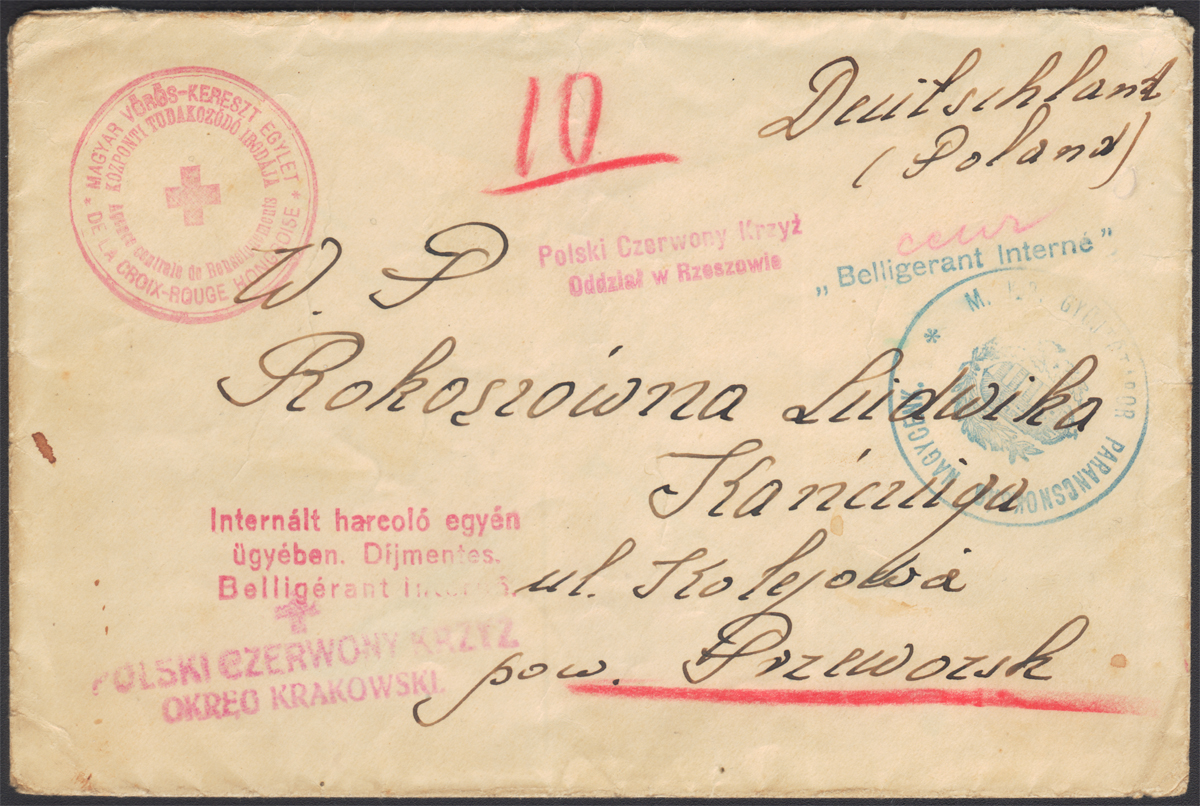 * MAGYAR VÖRÖS-KERESZT EGYLET *
KÖZPONTI TUDAKOZÓDÓ IRODÁJA
Agence centrale de Renseignements
DE LA CROIX-ROUGE HONGROISE
10
Deutschland
(Poland)
Polski Czerwony Krzyż
Oddział w Rzeszowie
„Belligerant Interné”
W. P
Rokoszówna Ludwika
Kańczuga
ul. Kolejowa
pow. Przeworsk
* M. GYÜJTŐTÁBOR PARANCSNOK NAGYCENK.
Internált harcoló egyén
ügyében. Díjmentes.
Belligérant Interné.
POLSKI CZERWONY KRZYŻ
OKRĘG KRAKOWSKI.